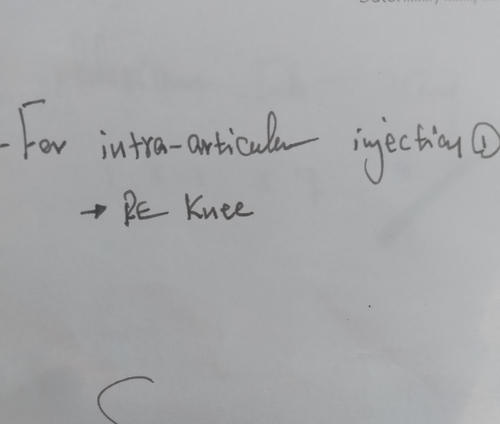 - For intra-articular injection ①
→ RE Knee